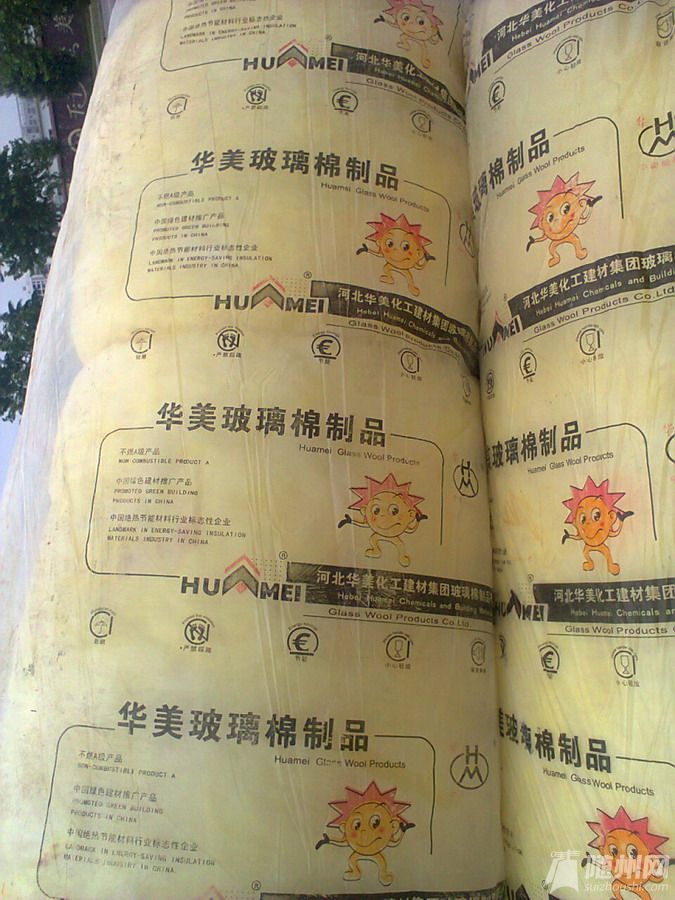 中国绿色建材推广产品
PROMOTED GREEN BUILDING
PRODUCTS IN CHINA
中国绝热节能材料行业标志性企业
LANDMARK IN ENERGY-SAVING INSULATION
MATERIALS INDUSTRY IN CHINA
HUAMEI
河北华美化工
Glass Wool Products Co
华美玻璃棉制品
Huamei Glass Wool Products
不燃A级产品
NON-COMBUSTIBLE PRODUCT A
中国绿色建材推广产品
PROMOTED GREEN BUILDING
PRODUCTS IN CHINA
中国绝热节能材料行业标志性企业
LANDMARK IN ENERGY-SAVING INSULATION
MATERIALS INDUSTRY IN CHINA
HUAMEI ®
河北华美化工建材集团玻璃
Hebei Huamei Chemicals and Building
Glass Wool Products Co.Ltd
严禁踩踏
节能
小心轻放
华美玻璃棉制品
Huamei Glass Wool Products
不燃A级产品
NON-COMBUSTIBLE PRODUCT A
中国绿色建材推广产品
PROMOTED GREEN BUILDING
PRODUCTS IN CHINA
中国绝热节能材料行业标志性企业
LANDMARK IN ENERGY-SAVING INSULATION
MATERIALS INDUSTRY IN CHINA
HM
HUAMEI ®
河北华美化工建材集团玻璃棉制品
Hebei Huamei Chemicals and Building
Glass Wool Products Co.Ltd
严禁踩踏
节能
小心轻放
华美玻璃棉制品
Huamei Glass Wool Products
不燃A级产品
NON-COMBUSTIBLE PRODUCT A
中国绿色建材推广产品
PROMOTED GREEN BUILDING
PRODUCTS IN CHINA
中国绝热节能材料行业标志性企业
LANDMARK IN ENERGY-SAVING INSULATION
MATERIALS INDUSTRY IN CHINA
HM
HUAMEI
河北华美化工建
Hebei Huamei Chemicals
Glass Wool Products
小心轻放
璃棉制品
Huamei Glass Wool Products
HM
HUAMEI
河北华美化工建材集团玻璃
Hebei Huamei Chemicals and Building
Glass Wool Products Co.Ltd
小心轻放
美玻璃棉制品
Huamei Glass Wool Products
HUAMEI ®
河北华美化工建材集团
Hebei Huamei Chemicals and
Glass Wool Products Co.Ltd
节能
小心轻放
美玻璃棉制品
Huamei Glass Wool Products
随州网
suizhoushi.com